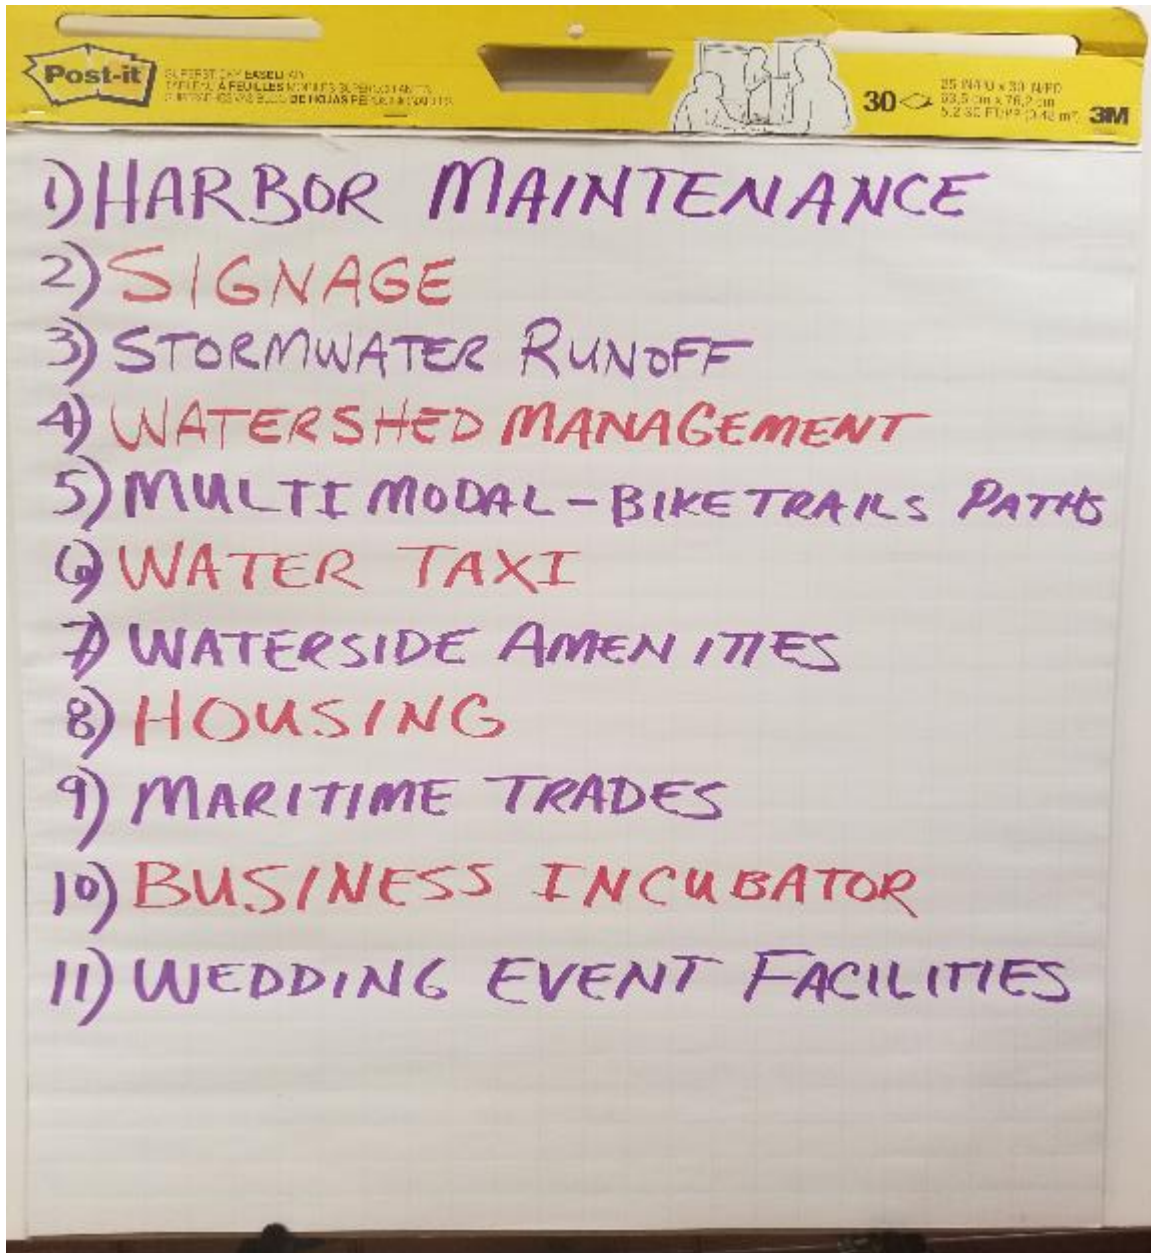 Post-it
EASEL
TABLEAU À FEUILLES MOBILES
DE HOJAS
30
3M
1) HARBOR MAINTENANCE
2) SIGNAGE
3) STORMWATER RUNOFF
4) WATERSHED MANAGEMENT
5) MULTIMODAL - BIKE TRAILS PATHS
6) WATER TAXI
7) WATERSIDE AMENITIES
8) HOUSING
9) MARITIME TRADES
10) BUSINESS INCUBATOR
11) WEDDING EVENT FACILITIES